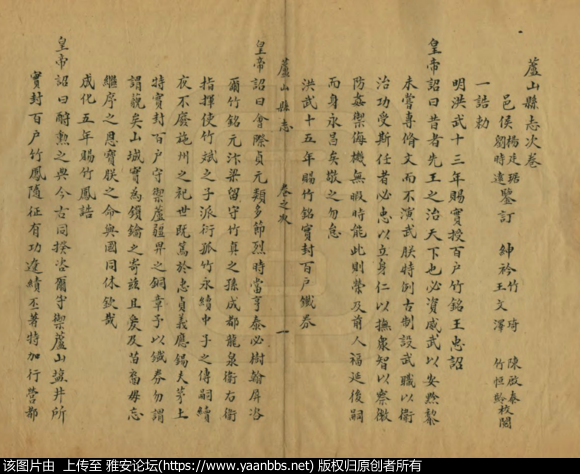 蘆山縣志次卷
邑侯 楊廷琚 劉時遠 鑒訂 紳衿 竹琦 王文澤 陳啟泰 竹恒齡 校閱
一誥勅
明洪武十三年賜實授百戶竹銘王忠詔
皇帝詔曰昔者先王之治天下也必資威武以安黔黎
未嘗專脩文而不演武朕特倣古制設武職以衛
治功受斯任者必忠以立身仁以撫衆智以察微
防姦禦侮機無暇時能此則榮及前人福延後嗣
而身永昌矣敬之勿怠
洪武十五年賜竹銘實封百戶鐵券
蘆山縣志 卷之次 一
皇帝詔曰會際貞元類多節烈時當亨泰必樹翰屏咨
爾竹銘元汴梁留守竹真之孫成都龍泉衛右衛
指揮使竹斌之子派衍孤竹永績申子之傳嗣續
夜不廢施州之祀世既篤於忠貞義應錫夫茅土
特實封百戶守禦蘆疆畀之銅章予以鐵券勿謂
謂蕞矣山城實為鎖鑰之寄兹且爰及苗裔毋忘
繼序之思寶朕之命與國同休欽哉
成化五年賜竹鳳誥
皇帝詔曰酬勲之典今古同揆咨爾守禦蘆山鹽井所
實封百戶竹鳳隨征有功邊績丕著特加行營都
该图片由 上传至 雅安论坛(https://www.yaanbbs.net) 版权归原创者所有